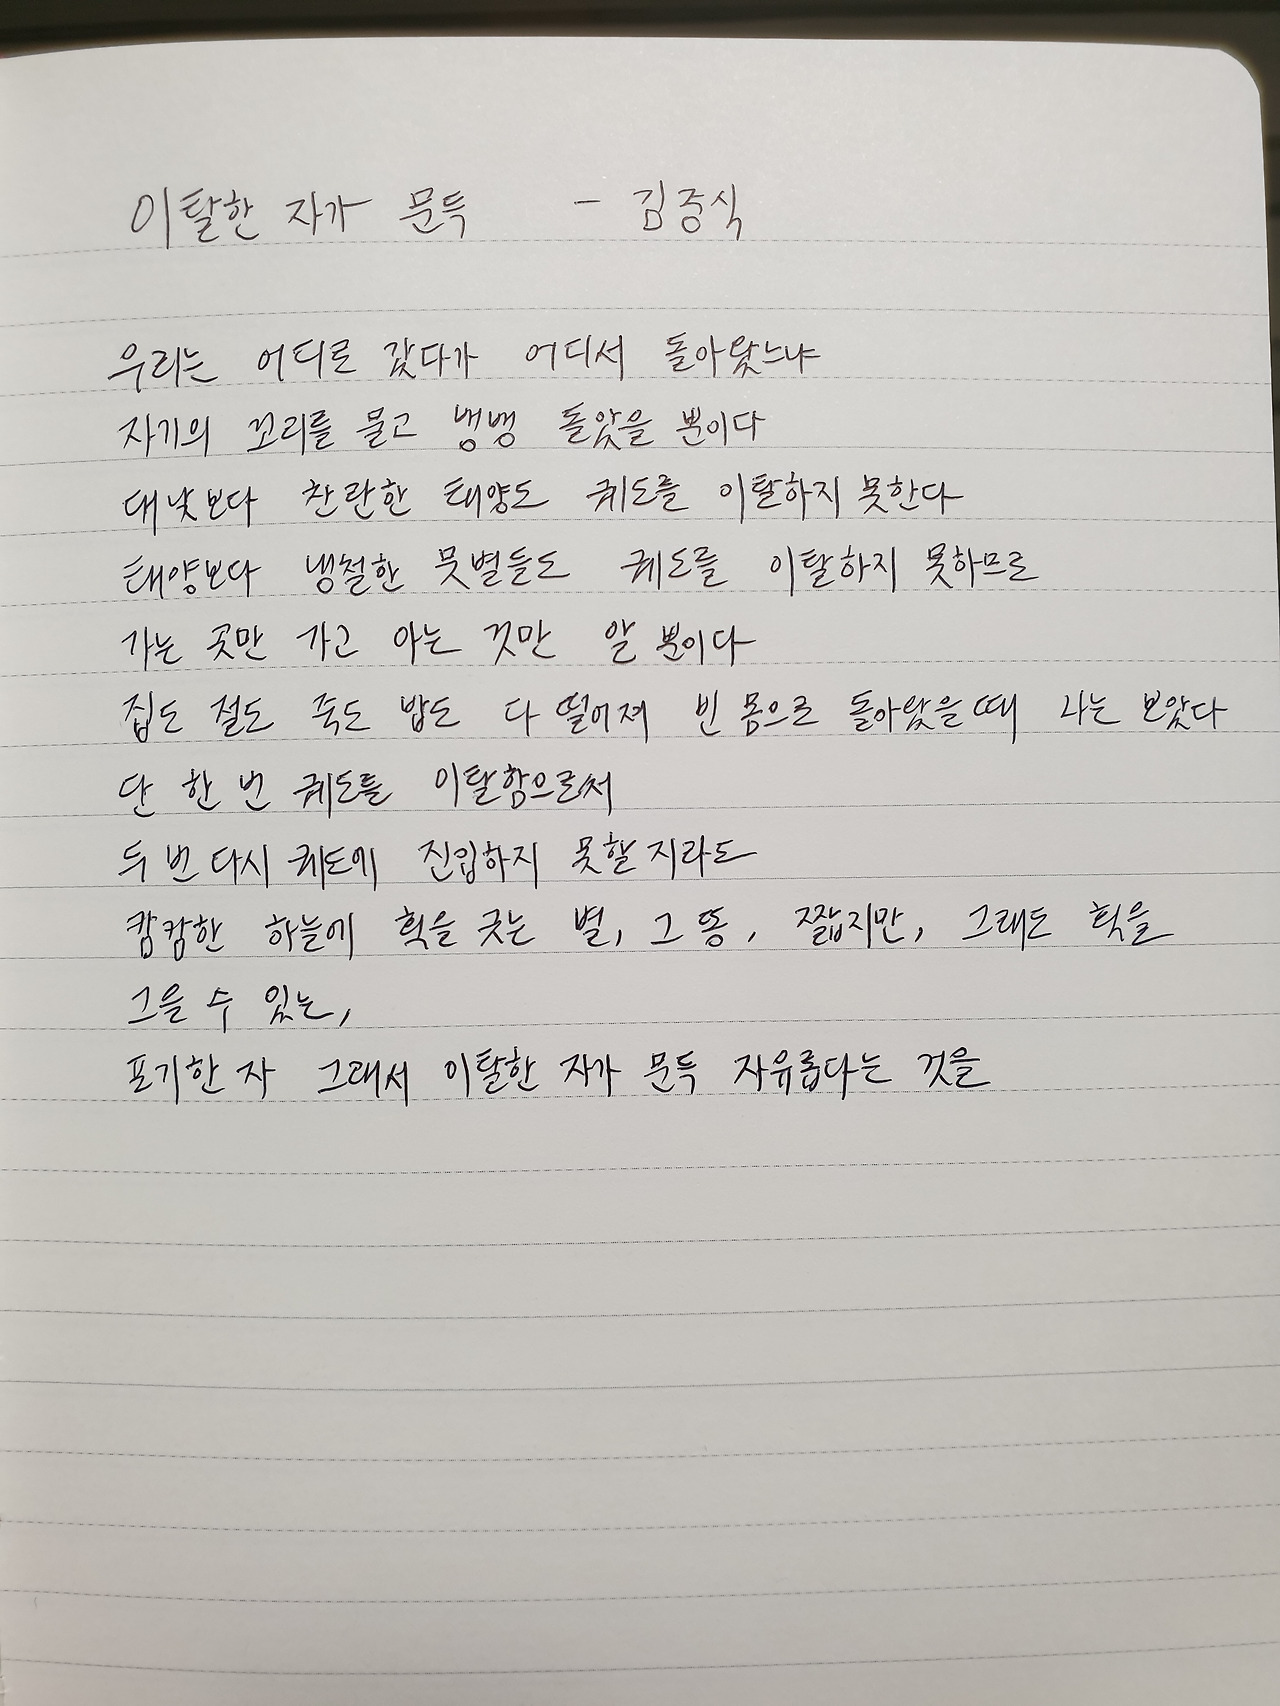 이탈한 자가 문득 - 김중식
우리는 어디로 갔다가 어디서 돌아왔느냐
자기의 꼬리를 물고 뱅뱅 돌았을 뿐이다
대낮보다 찬란한 태양도 궤도를 이탈하지 못한다
태양보다 냉철한 뭇별들도 궤도를 이탈하지 못하므로
가는 곳만 가고 아는 것만 알 뿐이다
집도 절도 죽도 밥도 다 떨어져 빈 몸으로 돌아왔을 때 나는 보았다
단 한 번 궤도를 이탈함으로써
두 번 다시 궤도에 진입하지 못할지라도
캄캄한 하늘에 획을 긋는 별, 그 똥, 짧지만, 그래도 획을
그을 수 있는,
포기한 자 그래서 이탈한 자가 문득 자유롭다는 것을